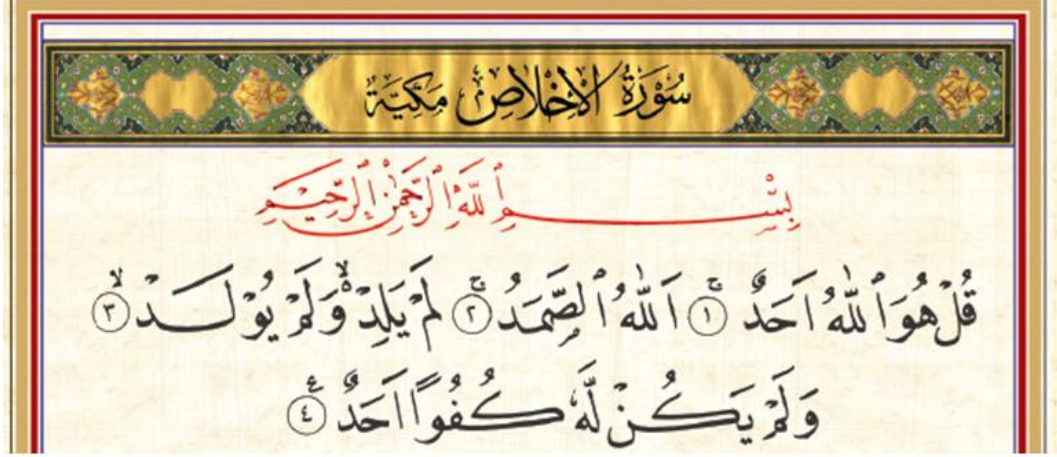 سُوْرَةُ الْاِخْلَاصِ مَكِّيَّةٌ
بِسْمِ ٱللَّهِ ٱلرَّحْمٰنِ ٱلرَّحِيمِ
قُلْ هُوَ ٱللّٰهُ اَحَدٌ ۚ ١ اَللّٰهُ ٱلصَّمَدُ ۚ ٢ لَمْ يَلِدْ ۙ وَلَمْ يُوْلَدْ ۙ ٣
وَلَمْ يَكُنْ لَهُ كُفُوًا اَحَدٌ ٤